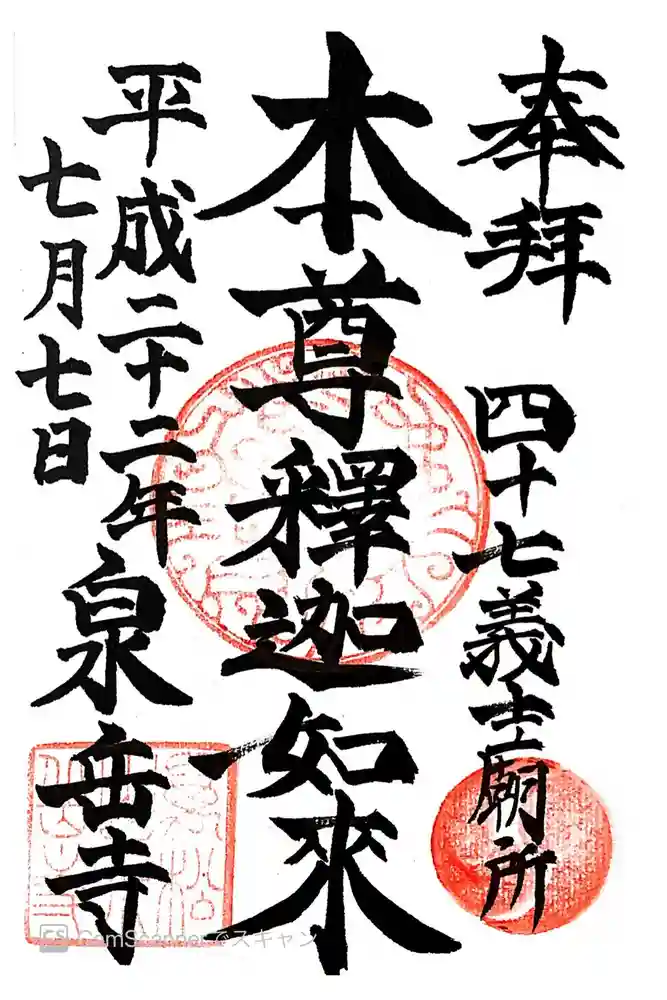 奉拝
四十七義士廟所
本尊釋迦如來
平成二十二年
七月七日
泉岳寺
CS CamScannerでスキャン